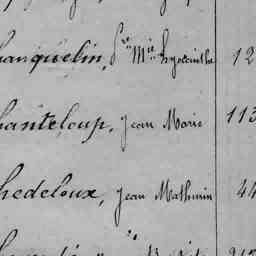 hanquelin, Pre Mie hyacinthe 12
hanteloup, Jean Marie 113
hedeloux, Jean Mathurin 44